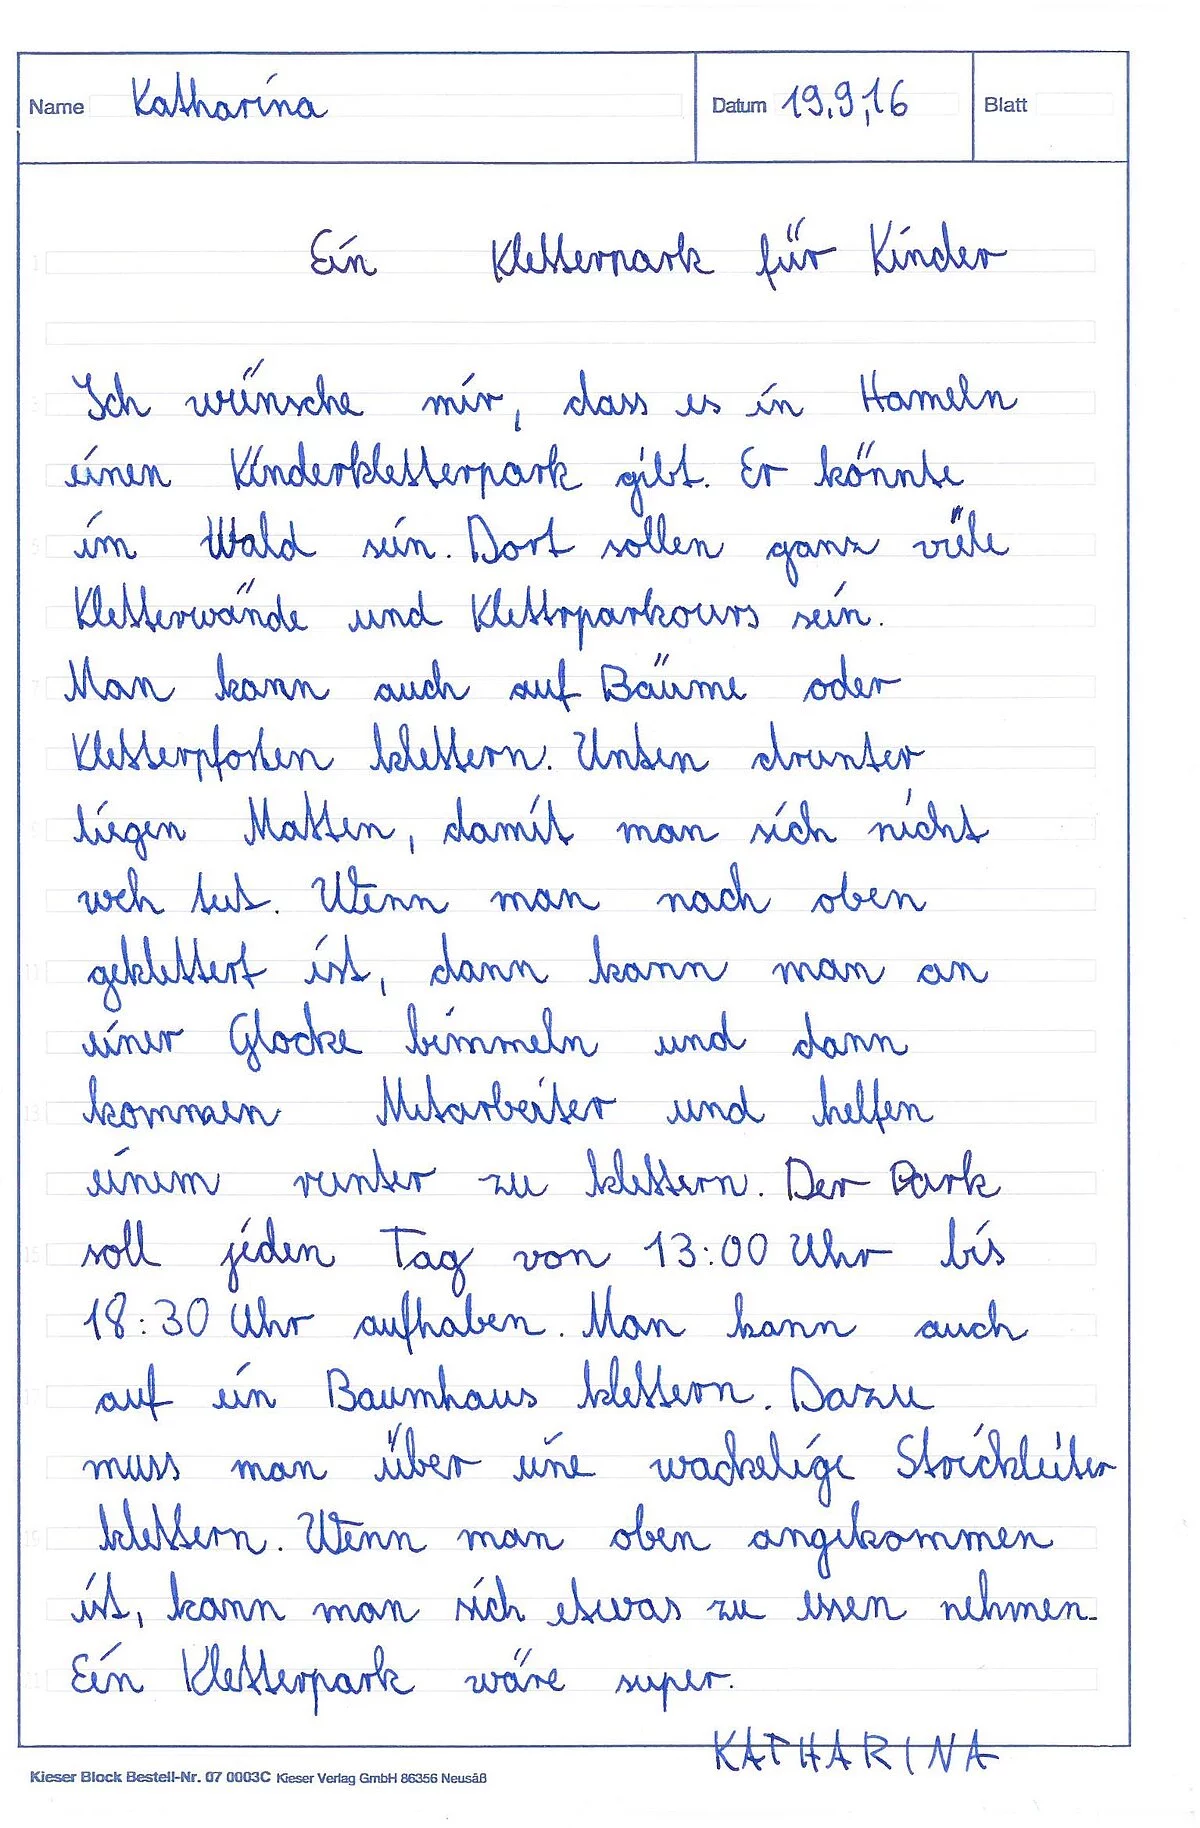 Name Katharina Datum 19.9.16 Blatt
Ein Kletterpark für Kinder
Ich wünsche mir, dass es in Hameln
einen Kinderkletterpark gibt. Er könnte
im Wald sein. Dort sollen ganz viele
Kletterwände und Klettrparkours sein.
Man kann auch auf Bäume oder
Kletterpfosten klettern. Unten drunter
liegen Matten, damit man sich nicht
weh tut. Wenn man nach oben
geklettert ist, dann kann man an
einer Glocke bimmeln und dann
kommen Mitarbeiter und helfen
einem runter zu klettern. Der Park
soll jeden Tag von 13:00 Uhr bis
18:30 Uhr aufhaben. Man kann auch
auf ein Baumhaus klettern. Dazu
muss man über eine wackelige Strickleiter
klettern. Wenn man oben angekommen
ist, kann man sich etwas zu essen nehmen.
Ein Kletterpark wäre super.
KATHARINA
Kieser Block Bestell-Nr. 07 0003C Kieser Verlag GmbH 86356 Neusäß